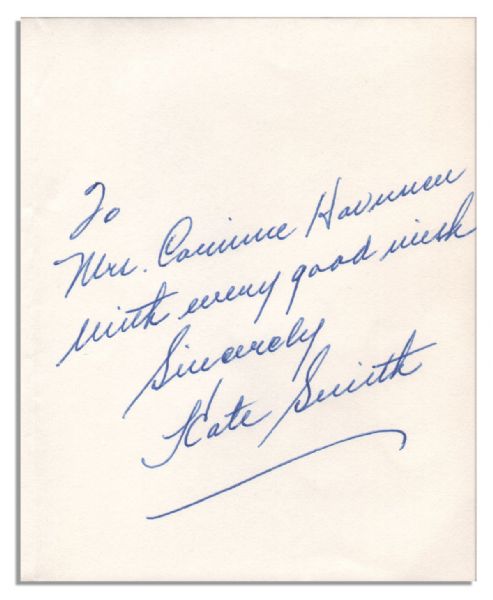 To
Mrs. Corinne Havunen
With every good wish
Sincerely
Kate Smith